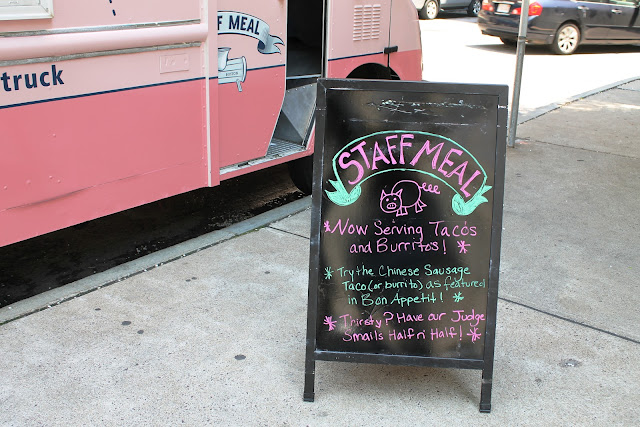 F MEAL
truck
STAFF MEAL
* Now Serving Tacos
and Burritos! *
* Try the Chinese Sausage
Taco (or burrito) as featured
in Bon Appetit! *
* Thirsty? Have our Judge
Smails Half n' Half! *